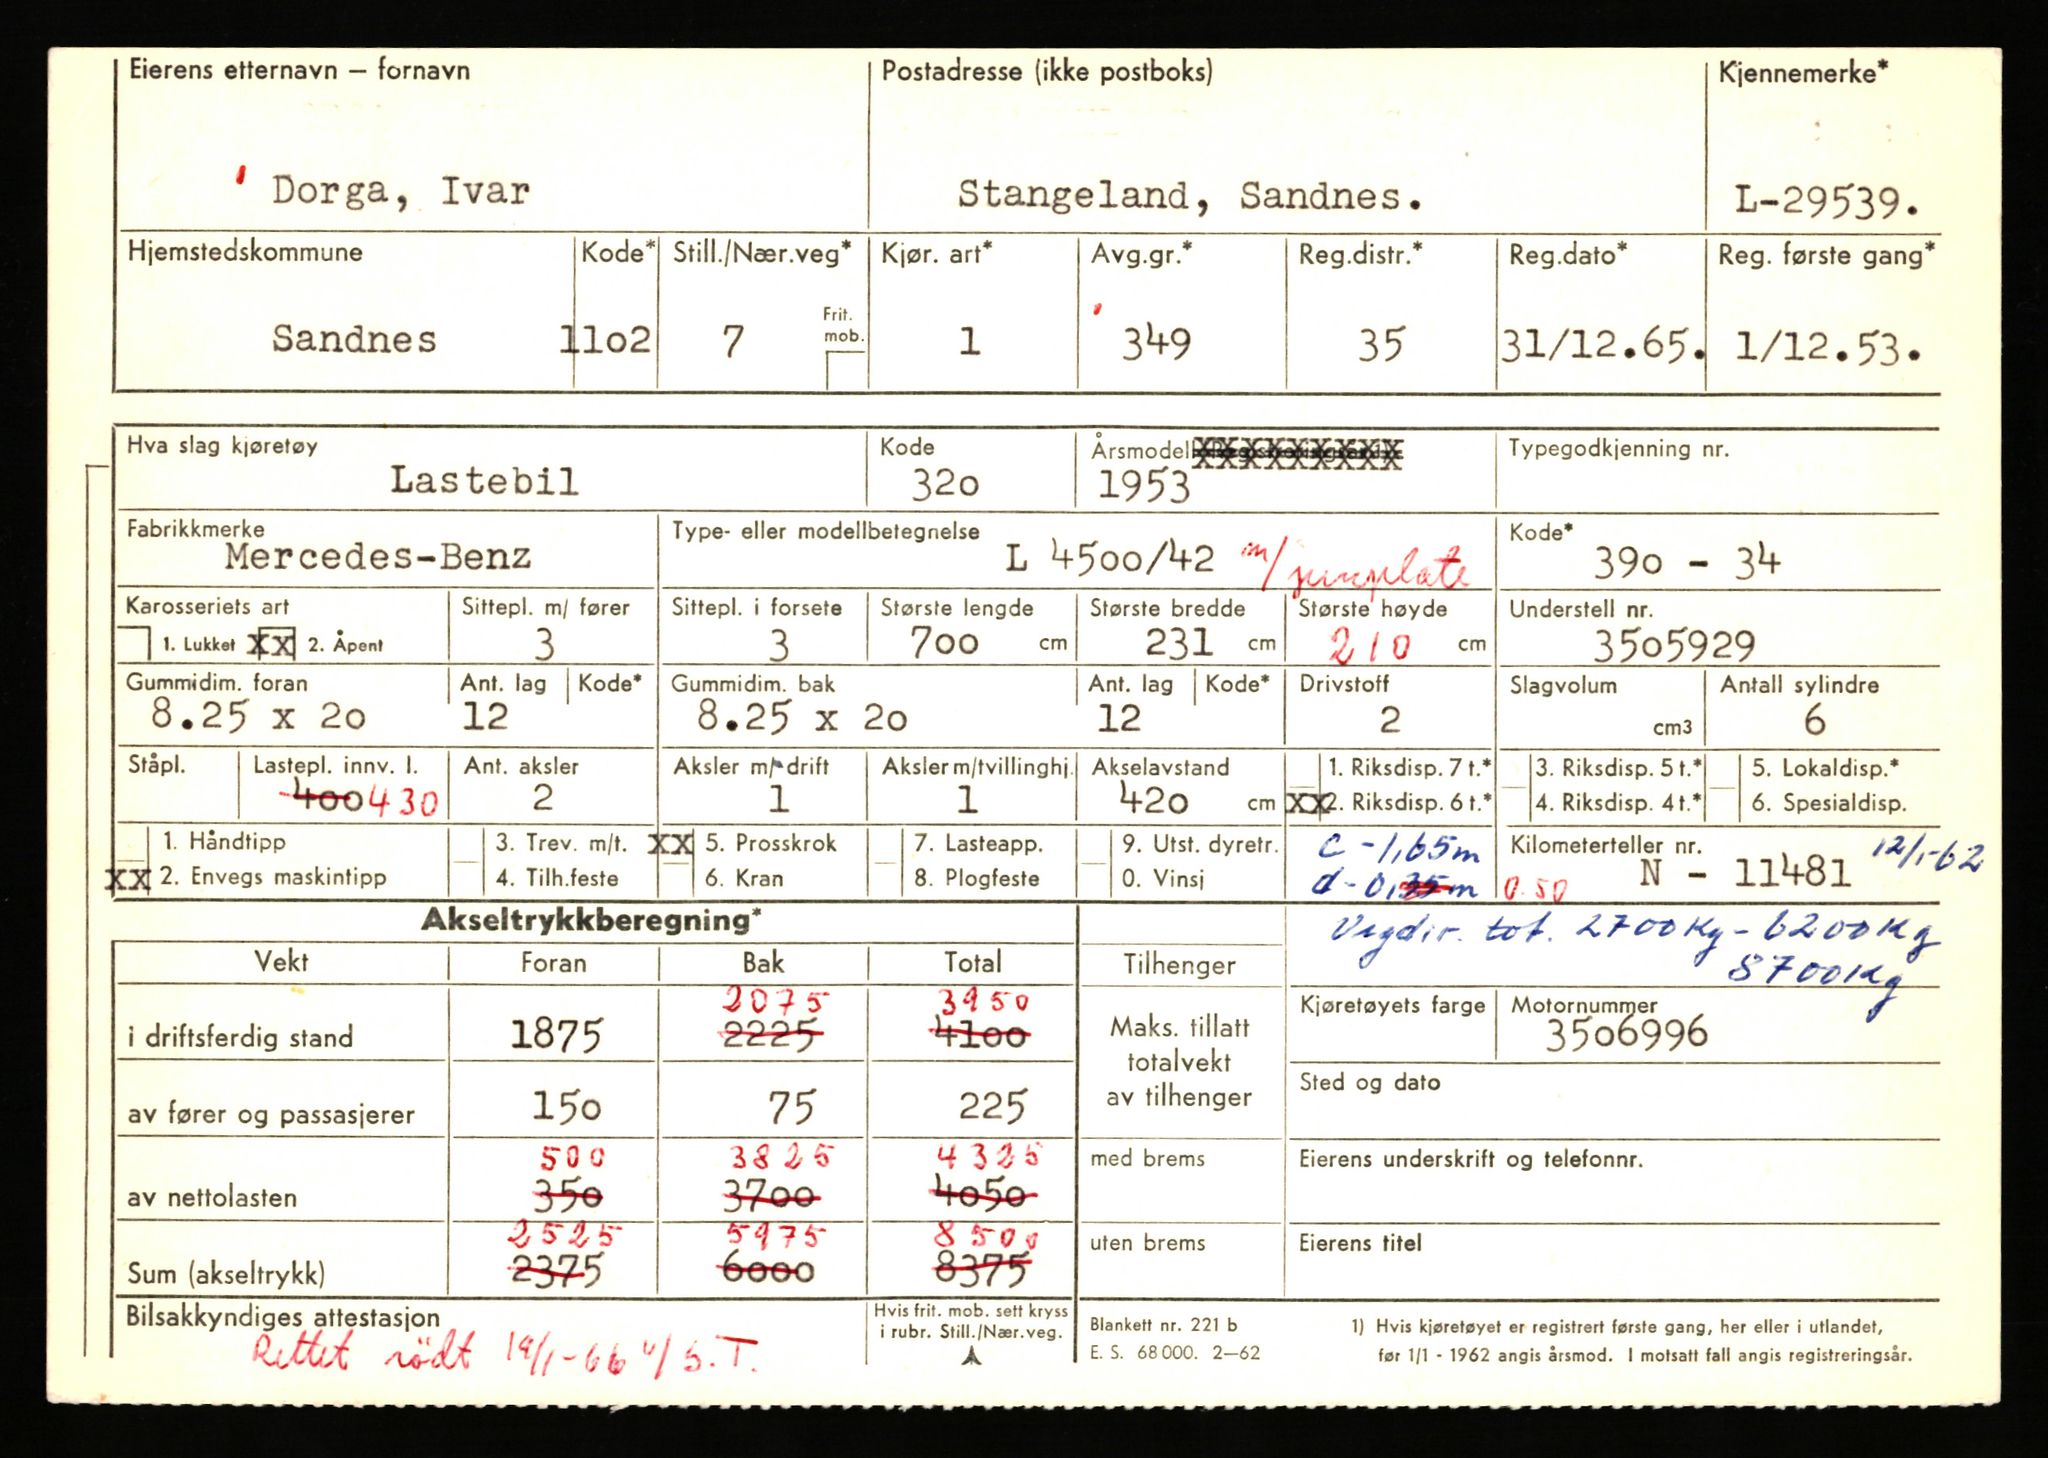 Eierens etternavn – fornavn Postadresse (ikke postboks) Kjennemerke*
Dorga, Ivar Stangeland, Sandnes. L-29539.
Hjemstedskommune Kode* Still./Nær.veg* Kjør. art* Avg.gr.* Reg.distr.* Reg.dato* Reg. første gang*
Frit. mob.
Sandnes 11o2 7 1 349 35 31/12.65. 1/12.53.
Hva slag kjøretøy Kode Årsmodell Typegodkjenning nr.
Lastebil 32o 1953
Fabrikkmerke Type- eller modellbetegnelse Kode*
Mercedes-Benz L 45oo/42 m/ 39o - 34
Karosseriets art Sittepl. m/ fører Sittepl. i forsete Største lengde Største bredde Største høyde Understell nr.
1. Lukket XX 2. Åpent 3 3 7oo cm 231 cm 210 cm 35o5929
Gummidim. foran Ant. lag Kode* Gummidim. bak Ant. lag Kode* Drivstoff Slagvolum Antall sylindre
8.25 x 2o 12 8.25 x 2o 12 2 cm3 6
Ståpl. Lastepl. innv. l. Ant. aksler Aksler m/ drift Aksler m/tvillinghj. Akselavstand 1. Riksdisp. 7 t.* 3. Riksdisp. 5 t.* 5. Lokaldisp.*
4oo 430 2 1 1 42o cm XX 2. Riksdisp. 6 t.* 4. Riksdisp. 4 t.* 6. Spesialdisp.
1. Håndtipp 3. Trev. m/t. XX 5. Prosskrok 7. Lasteapp. 9. Utst. dyretr. c - 1,65m Kilometerteller nr. 12/1-62
XX 2. Envegs maskintipp 4. Tilh.feste 6. Kran 8. Plogfeste 0. Vinsj d - 0,35m 0.50 N - 11481
Akseltrykkberegning* Vegdir. tot. 2700kg - 6200kg
8700kg
Vekt Foran Bak Total Tilhenger
2075 3950
i driftsferdig stand 1875 2225 41oo Maks. tillatt totalvekt av tilhenger Kjøretøyets farge Motornummer
35o6996
Sted og dato
av fører og passasjerer 15o 75 225
500 3825 4325
av nettolasten 35o 37oo 4o5o med brems Eierens underskrift og telefonnr.
2525 5975 8500
Sum (akseltrykk) 2375 6ooo 8375 uten brems Eierens titel
Bilsakkyndiges attestasjon Hvis frit. mob. sett kryss i rubr. Still./Nær.veg. Blankett nr. 221 b 1) Hvis kjøretøyet er registrert første gang, her eller i utlandet,
Rettet rødt 19/1-66 S.T. E. S. 68 000. 2–62 før 1/1 - 1962 angis årsmod. I motsatt fall angis registreringsår.